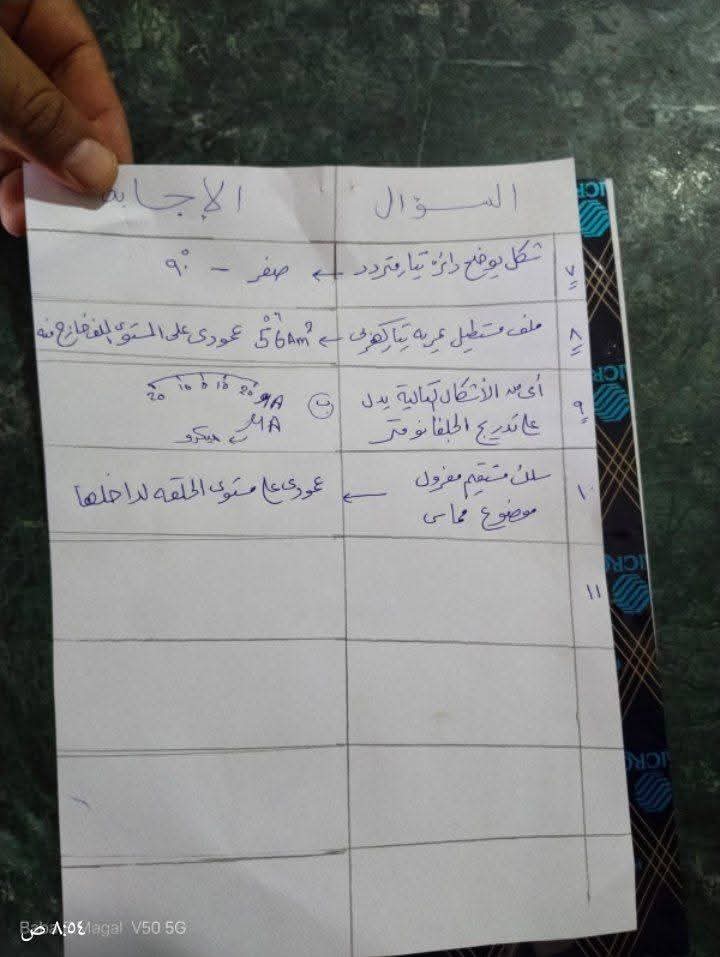 السؤال
الإجابة
٧
شكل يوضح دائرة تيار متردد ← صفر - ٩٠°
٨
ملف مستطيل يمر به تيار كهربى ← 56Am² عمودى على المستوى للخارج منه
٩
أى من الأشكال التالية يدل
على تدريج الجلفانومتر
ب
20 10 0 10 20 μA
μA
ميكرو
١٠
سلك مستقيم معزول
موضوع مماس
← عمودى على مستوى الحلقه لداخلها
١١
MICRO
MICRO
MICRO
Magal V50 5G
٨:٥٤ ص